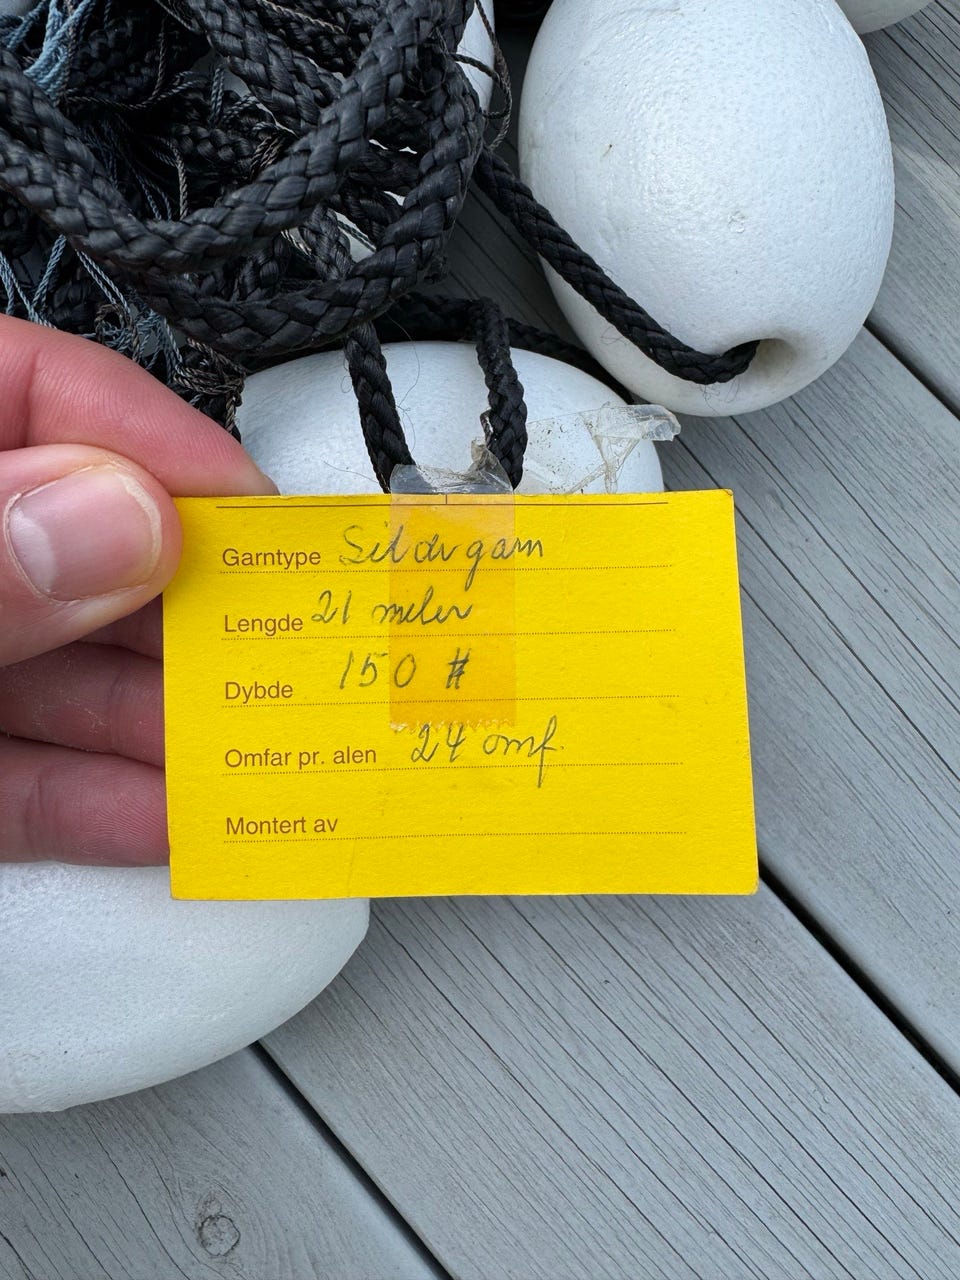 Garntype Sildegarn
Lengde 21 meter
Dybde 150 #
Omfar pr. alen 24 omf.
Montert av